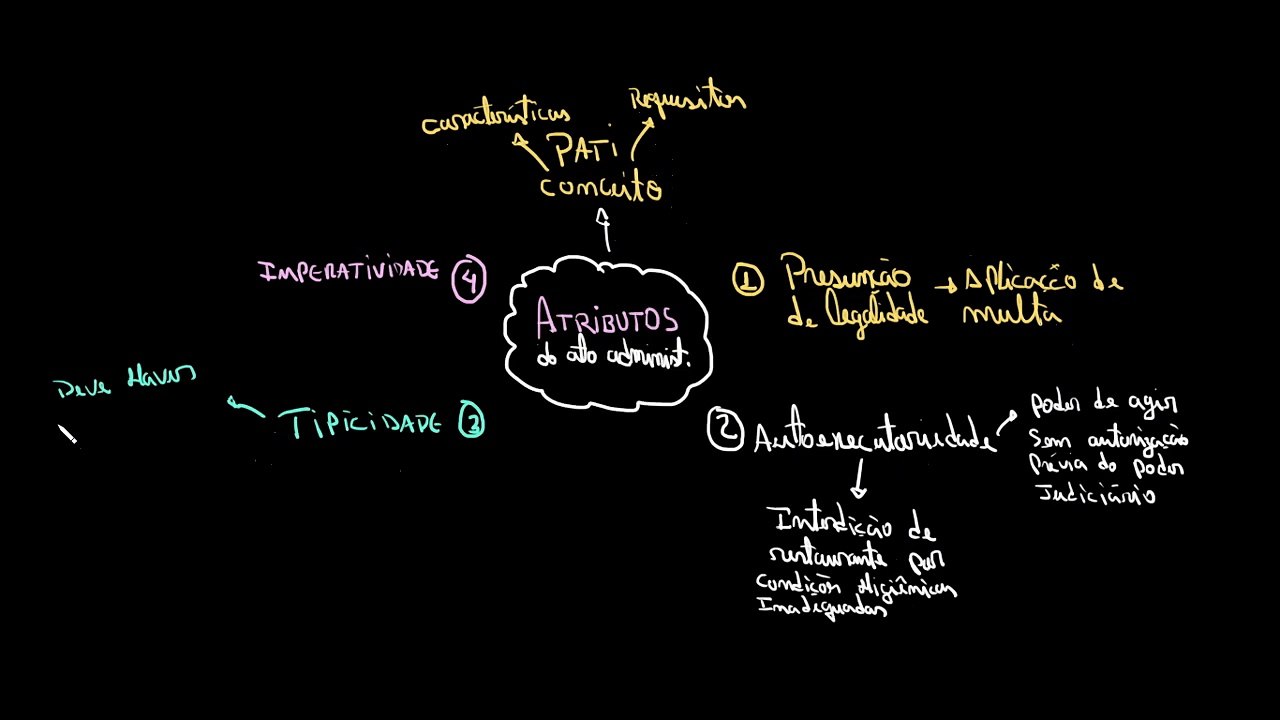 características
Requisitos
PATI
conceito
IMPERATIVIDADE 4
ATRIBUTOS
do ato administ.
1 Presunção → Aplicação de
de legalidade multa
Deve Haver
TIPICIDADE 3
2 Autoexecutoriedade
poder de agir
Sem autorização
prévia do poder
Judiciário
Interdição de
restaurante por
condições Higiênicas
Inadequadas